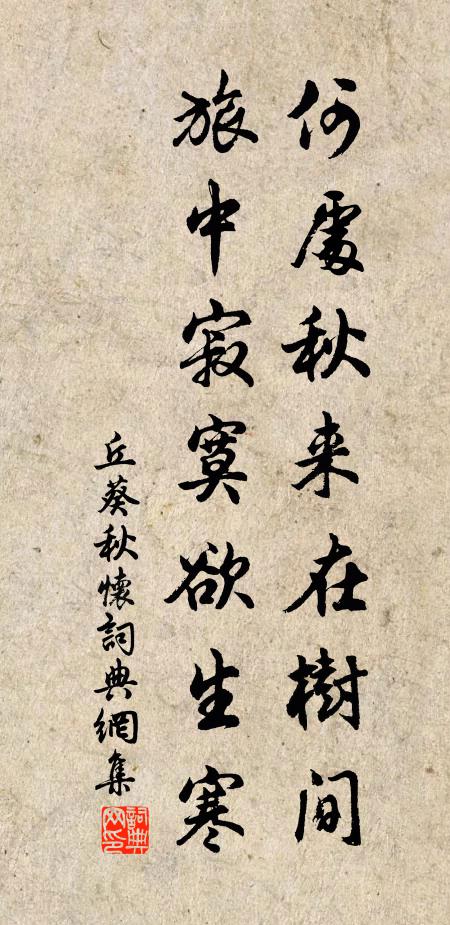 何處秋来在樹间
旅中寂寞欲生寒
丘葵秋懷詞典網集
詞典网印